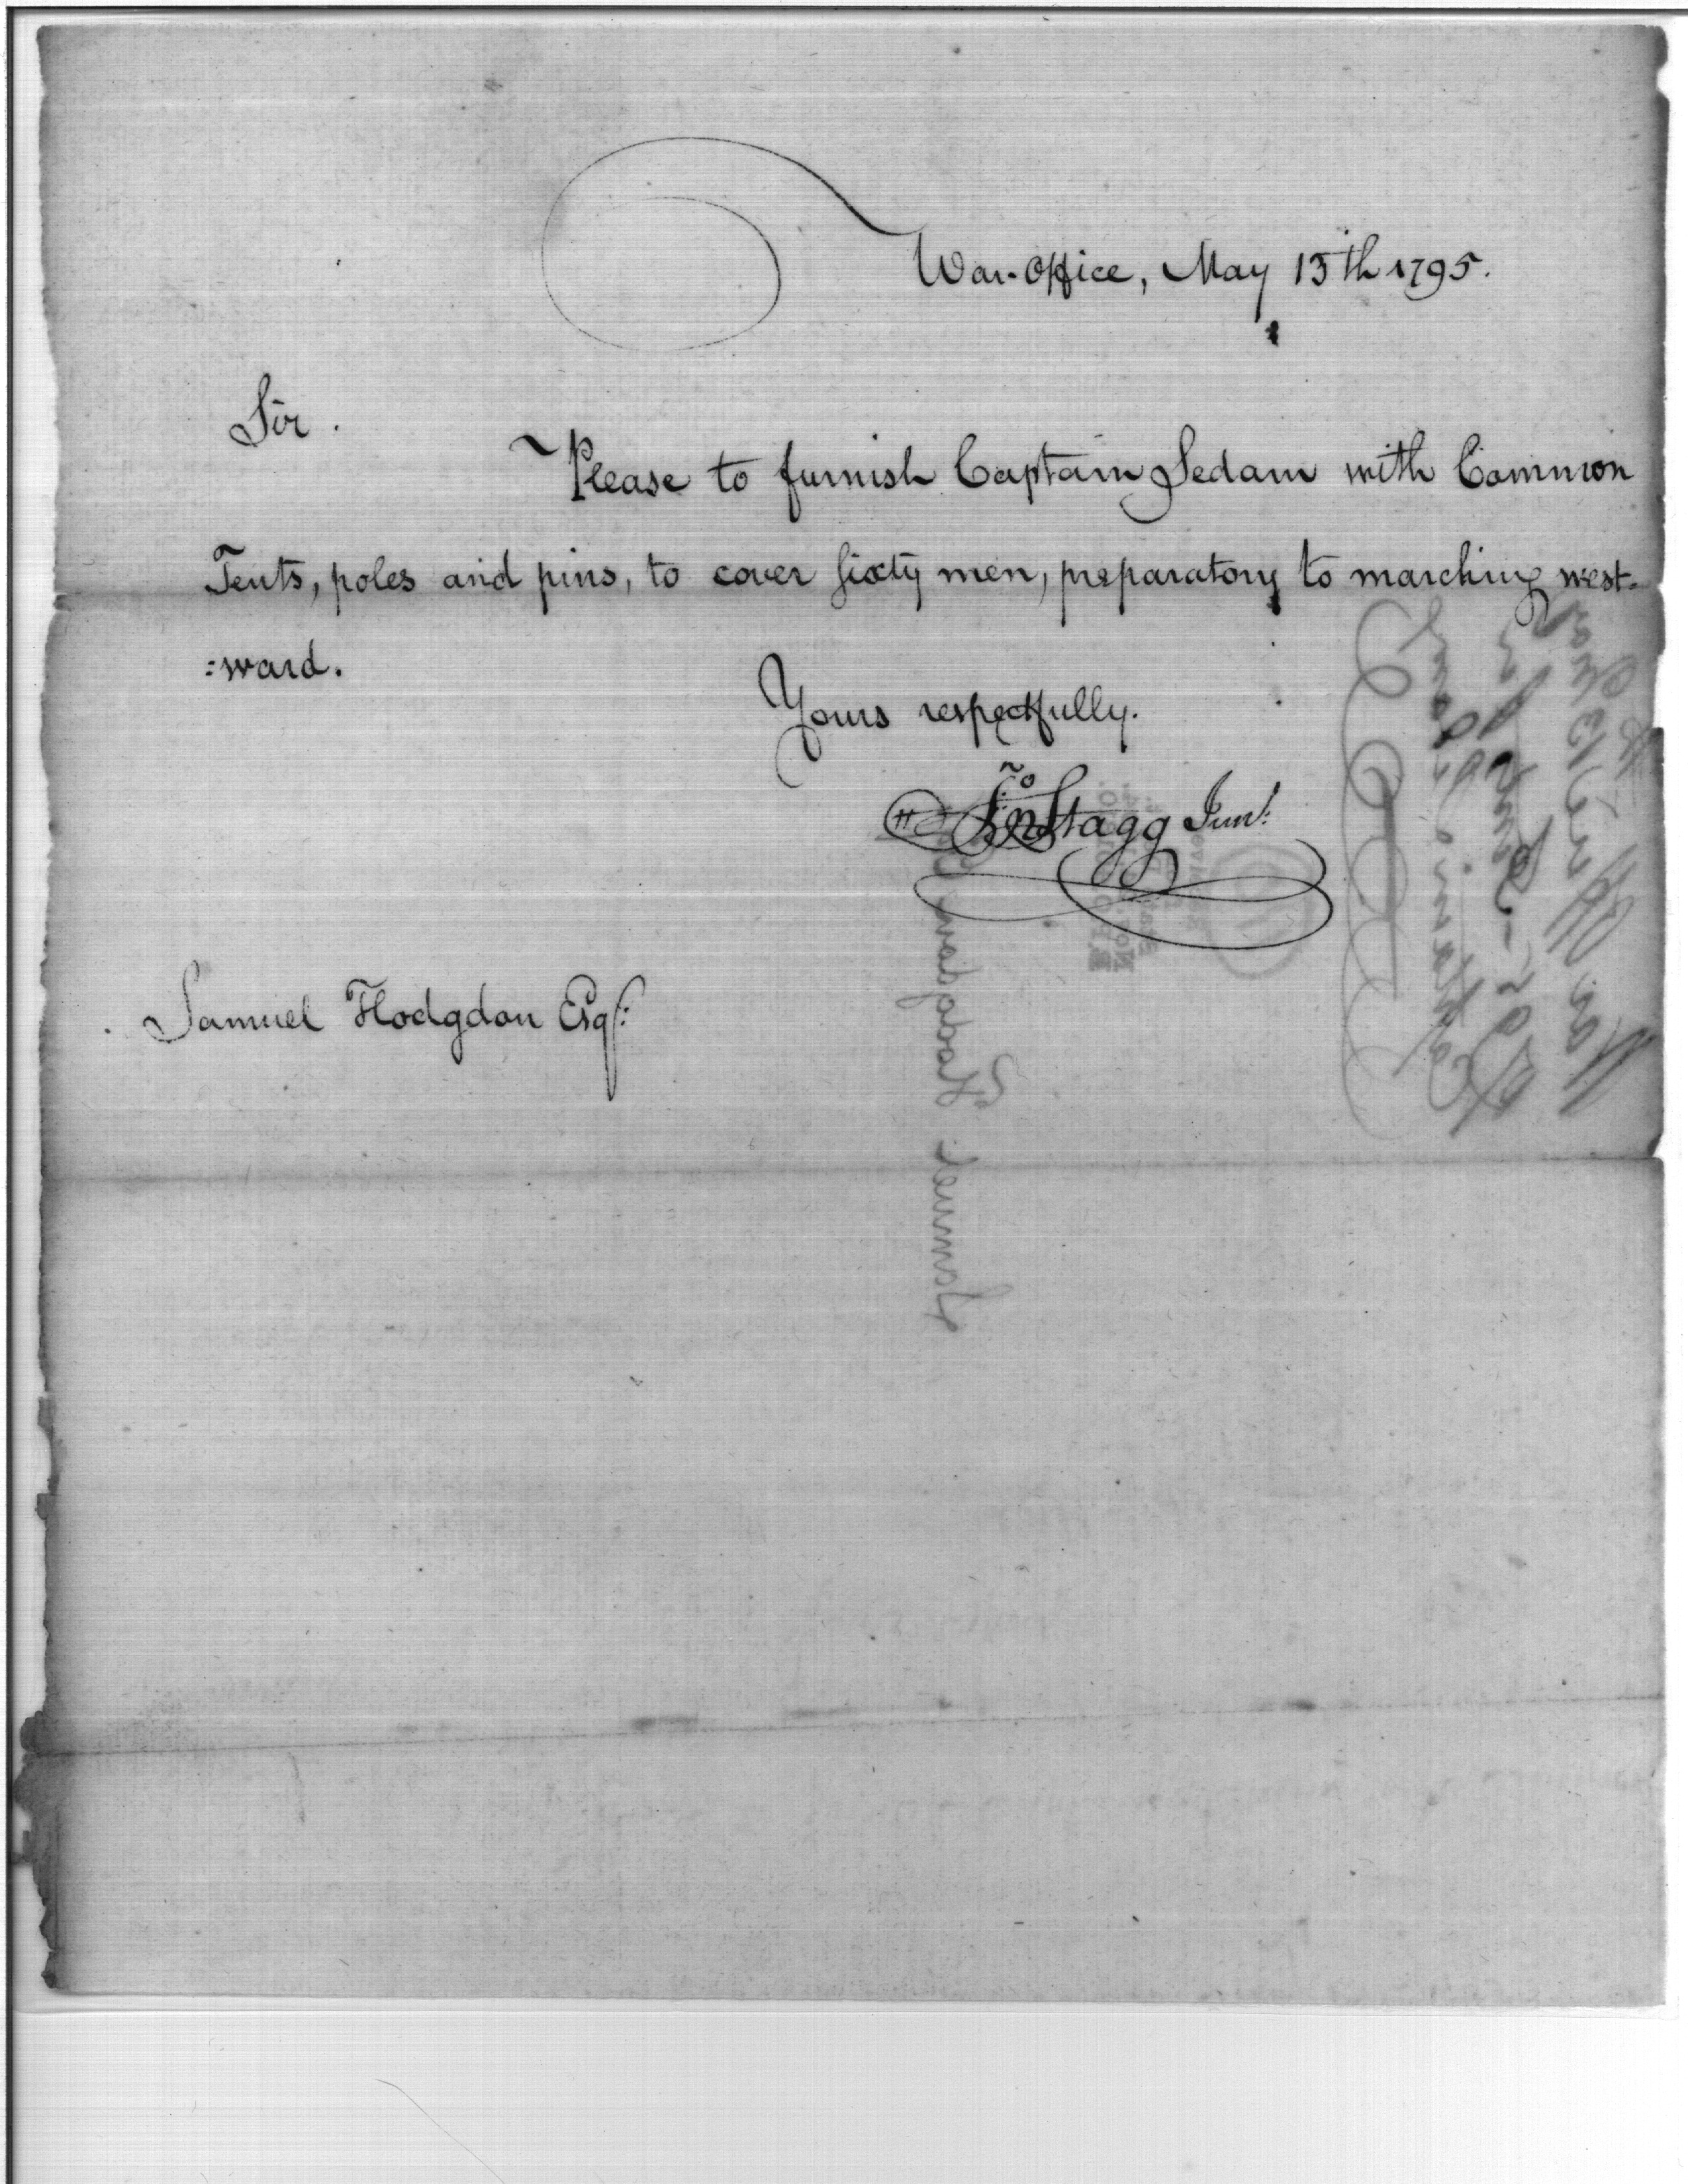 War-Office, May 15th 1795.
Sir.
Please to furnish Captain Sedam with Common
Tents, poles and pins, to cover sixty men, preparatory to marching west-
:ward.
Yours respectfully.
Jno Stagg Junr:
Samuel Hodgdon Esqr:
Samuel Hodgdon